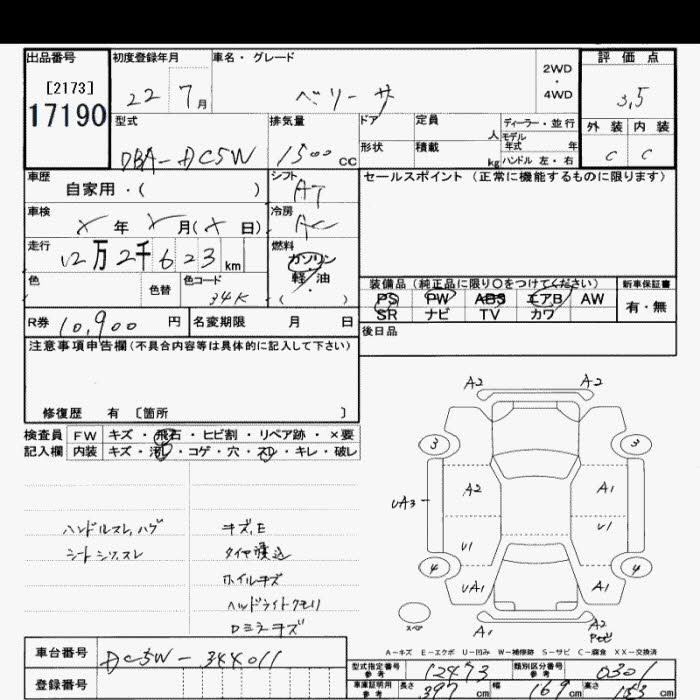 出品番号 初度登録年月 車名・グレード 2WD・4WD 評価点
[2173]
17190 22 7月 ベリーサ 3,5
型式 排気量 ドア 定員 人 ディーラー・並行 外装 内装
モデル年式 年
DBA-DC5W 1500cc 形状 積載 kg ハンドル 左・右 C C
車歴 シフト セールスポイント(正常に機能するものに限ります)
自家用・( ) AT
車検 冷房
年 月( 日) AC
走行 燃料
12万2千623km ガソリン
軽・油
( )
色 色替 色コード 装備品(純正品に限り〇をつけてください) 新車保証書
34K PS PW ABS エアB AW 有・無
SR ナビ TV カワ
R券 10,900円 名変期限 月 日 後日品
注意事項申告欄(不具合内容等は具体的に記入して下さい)
修復歴 有 〔箇所 〕
検査員 FW キズ・飛石・ヒビ割・リペア跡・×要
記入欄 内装 キズ・汚れ・コゲ・穴・スレ・キレ・破レ
A2 A2
3 3
A2 A1
UA3
U1 U1
4 4
UA1 A1
スペア
A1 A2
ハンドルスレ,ハゲ キズ,E
シートシワ,スレ タイヤ積込
ホイルキズ
ヘッドライトクモリ
Dミラーキズ
A-キズ E-エクボ U-凹み W-補修跡 S-サビ C-腐食 XX-交換済
車台番号 DC5W-344011
登録番号
型式指定番号 参考 12473 類別区分番号 参考 0301
車庫証明用 参考 長さ 397cm 幅 169cm 高さ 153cm